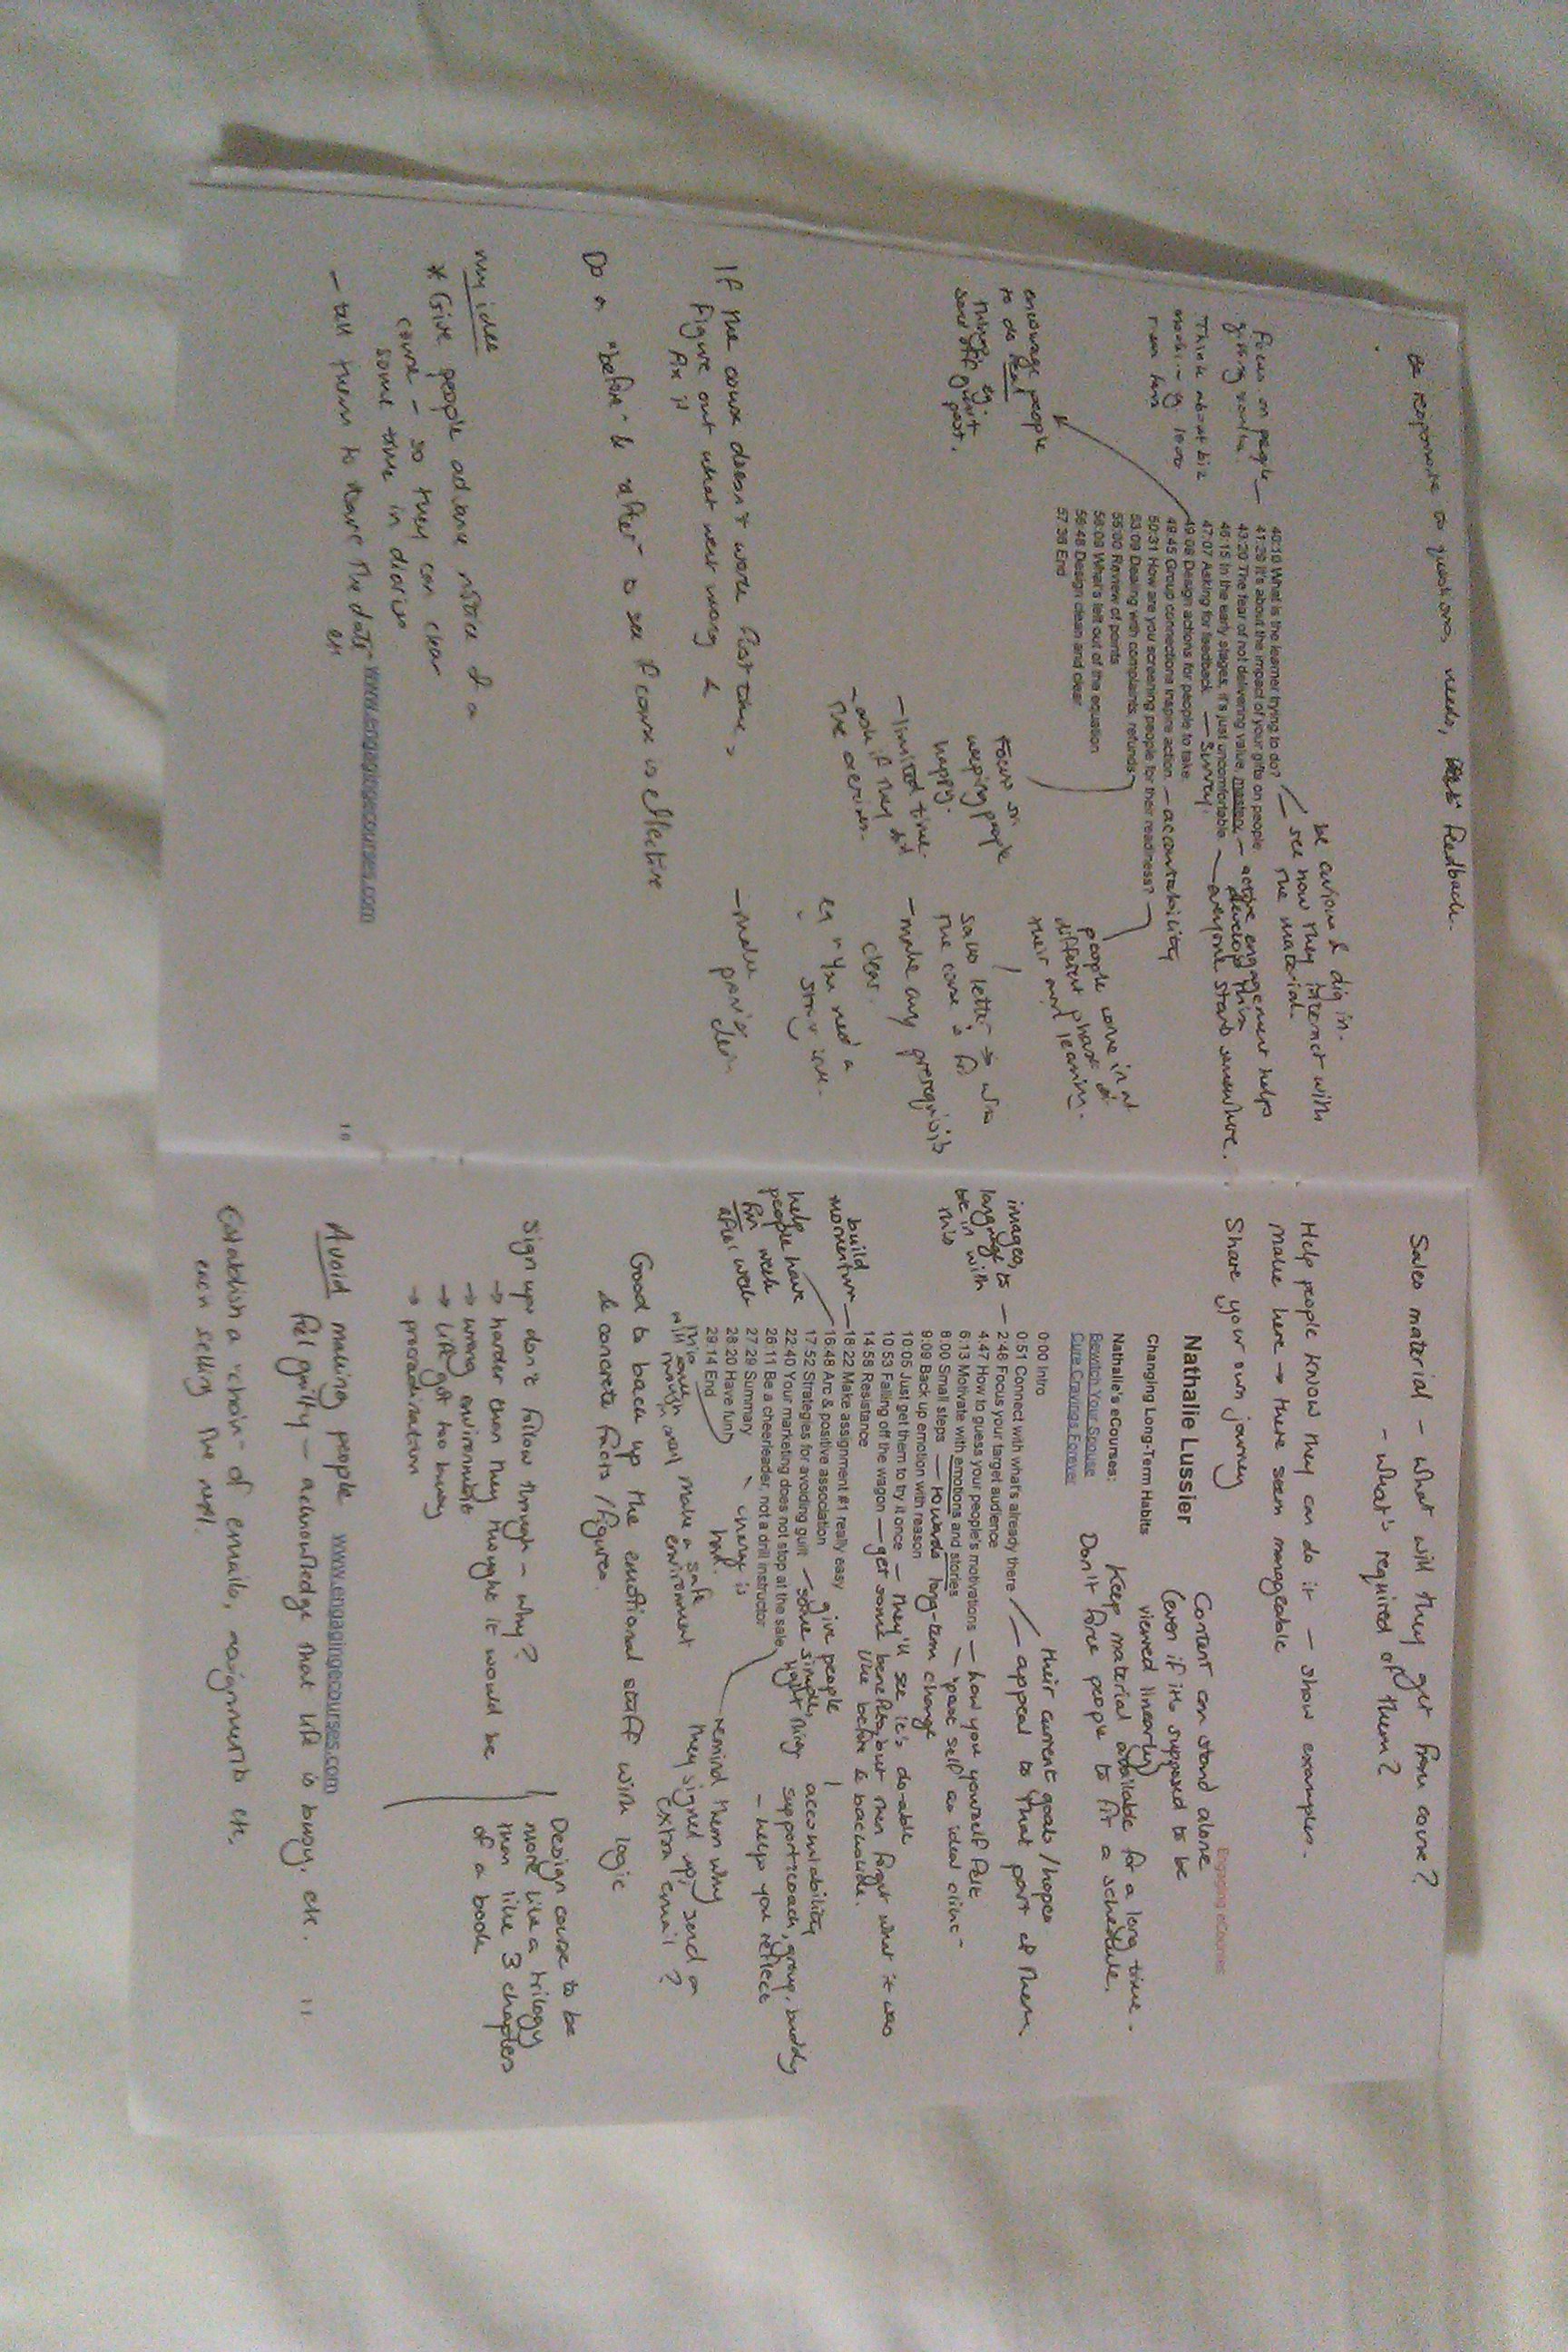 Be responsive to questions, needs, feedback.
be curious & dig in.
see how they interact with
the material.
Focus on people —
giving
Think about biz
model — g
40:10 What is the learner trying to do?
41:26 It's about the impact of your gifts on people.
43:20 The fear of not delivering value, mastery — active engagement helps
develop this
46:15 In the early stages, it's just uncomfortable. — everyone starts somewhere.
47:07 Asking for feedback. — Survey.
49:08 Design actions for people to take.
49:45 Group connections inspire action. — accountability
50:31 How are you screening people for their readiness?
53:09 Dealing with complaints, refunds
55:00 Review of points
56:09 What's left out of the equation
56:48 Design clean and clear
57:38 End
encourage people
to do Real
things eg
send off guest
post.
people come in at
different phases of
their own learning.
Focus on
keeping people
happy.
– limited time.
– ask if they did
the exercises.
sales letter → who
the course is for
– make any prerequisites
clear.
eg "You need a
– make
If the course doesn't work first time,
figure out what went wrong &
fix it
Do a "before" & "after" to see if course is effective
my idea
* Give people advance notice of a
course – so they can clear
some time in diaries
– tell them to "save the date"
etc
www.engagingecourses.com
10
Sales material – what will they get from course?
– what's required of them?
Help people know they can do it — show examples.
make here → there seem manageable
Share your own journey
Engaging eCourses
Nathalie Lussier
Changing Long-Term Habits
Nathalie's eCourses:
Bewitch Your Spouse
Cure Cravings Forever
Content can stand alone
(even if it's supposed to be
viewed linearly)
Keep material available for a long time.
Don't force people to fit a schedule.
0:00 Intro
their current goals / hopes
0:51 Connect with what's already there — appeal to that part of them.
images, to
language to
be in with
this
2:46 Focus your target audience
4:47 How to guess your people's motivations — how you yourself felt
6:13 Motivate with emotions and stories — "past self" as ideal client
8:00 Small steps — towards long-term change
9:09 Back up emotion with reason
10:05 Just get them to try it once — they'll see it's do-able
10:53 Falling off the wagon — get some benefits, but then forget what it was
like before & backslide.
14:58 Resistance
build
momentum
16:22 Make assignment #1 really easy
16:48 Arc & positive association
help
people have
fun week
after week
17:52 Strategies for avoiding guilt — give people
some simple,
22:40 Your marketing does not stop at the sale
26:11 Be a cheerleader, not a drill instructor
27:29 Summary
28:20 Have fun!
29:14 End
change is
hard.
make a safe
environment
accountability
support: coach, group, buddy
– helps you reflect
remind them why
they signed up, send an
extra email?
Good to back up the emotional stuff with logic
& concrete facts / figures.
Sign up, don't follow through – why?
→ harder than they thought it would be
→ wrong environment
→ life got too busy
→ procrastination
Design course to be
more like a trilogy
than like 3 chapters
of a book
Avoid making people
feel guilty – acknowledge that life is busy, etc.
Establish a "chain" of emails, assignments etc,
each selling the next.
www.engagingecourses.com
11